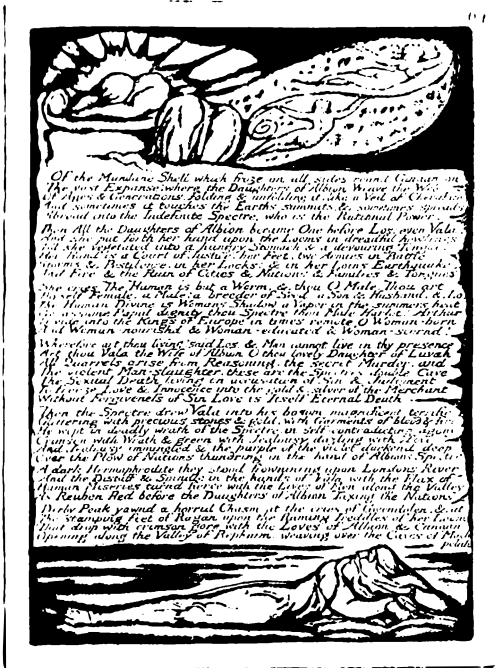 Of the Mundane Shell which froze on all sides round Canaan on
The vast Expanse: where the Daughters of Albion Weave the Web
Of Ages & Generations, folding & unfolding it, like a Veil of Cherubim
And sometimes it touches the Earths summits, & sometimes spreads
Abroad into the Indefinite Spectre, who is the Rational Power.
Then All the Daughters of Albion became One before Los: even Vala!
And she put forth her hand upon the Looms in dreadful howlings
Till she vegetated into a hungry Stomach & a devouring Tongue.
Her Hand is a Court of Justice, her Feet: two Armies in Battle
Storms & Pestilence: in her Locks: & in her Loins Earthquake.
And Fire. & the Ruin of Cities & Nations & Families & Tongues
She cries: The Human is but a Worm, & thou O Male: Thou art
Thyself Female, a Male: a breeder of Seed: a Son & Husband: & Lo.
The Human Divine is Womans Shadow, a Vapor in the summers heat
Go assume Papal dignity thou Spectre, thou Male Harlot! Arthur
Divide into the Kings of Europe in times remote O Woman-born
And Woman-nourishd & Woman-educated & Woman-scorn'd!
Wherefore art thou living? said Los, & Man cannot live in thy presence
Art thou Vala the Wife of Albion O thou lovely Daughter of Luvah
All Quarrels arise from Reasoning. the secret Murder, and
The violent Man-slaughter. these are the Spectres double Cave
The Sexual Death living on accusation of Sin & Judgment
To freeze Love & Innocence into the gold & silver of the Merchant
Without Forgiveness of Sin Love is Itself Eternal Death
Then the Spectre drew Vala into his bosom magnificent terrific
Glittering with precious stones & gold, with Garments of blood & fire
He wept in deadly wrath of the Spectre, in self-contradicting agony
Crimson with Wrath & green with Jealousy dazling with Love
And Jealousy immingled & the purple of the violet darkend deep
Over the Plow of Nations thundring in the hand of Albions Spectre
A dark Hermaphrodite they stood frowning upon Londons River
And the Distaff & Spindle in the hands of Vala with the Flax of
Human Miseries turnd fierce with the Lives of Men along the Valley
As Reuben fled before the Daughters of Albion Taxing the Nations
Derby Peak yawnd a horrid Chasm at the cries of Gwendolen, & at
The stamping feet of Ragan upon the flaming Treddles of her Loom
That drop with crimson gore with the Loves of Albion & Canaan
Opening along the Valley of Rephaim, weaving over the Caves of Mach-
pelah